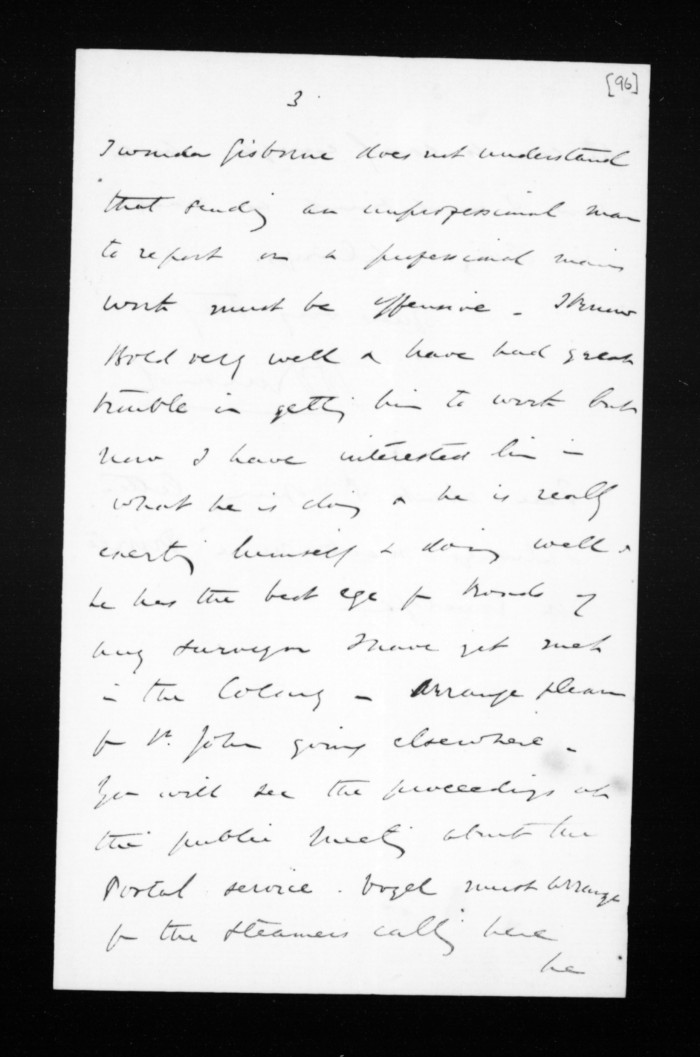 [96]
3.
I wonder Gisborne does not understand
that sending an unprofessional man
to report on a professional mans
work must be offensive - I know
Hold very well & have had great
trouble in getting him to work but
now I have interested him in
what he is doing & he is really
exerting himself & doing well &
he has the best eye for roads of
any surveyor I have yet met
in the Colony - Arrange please
for St. John going elsewhere -
You will see the proceedings at
the public meeting about the
Postal service. Vogel must arrange
for the steamers calling here
he